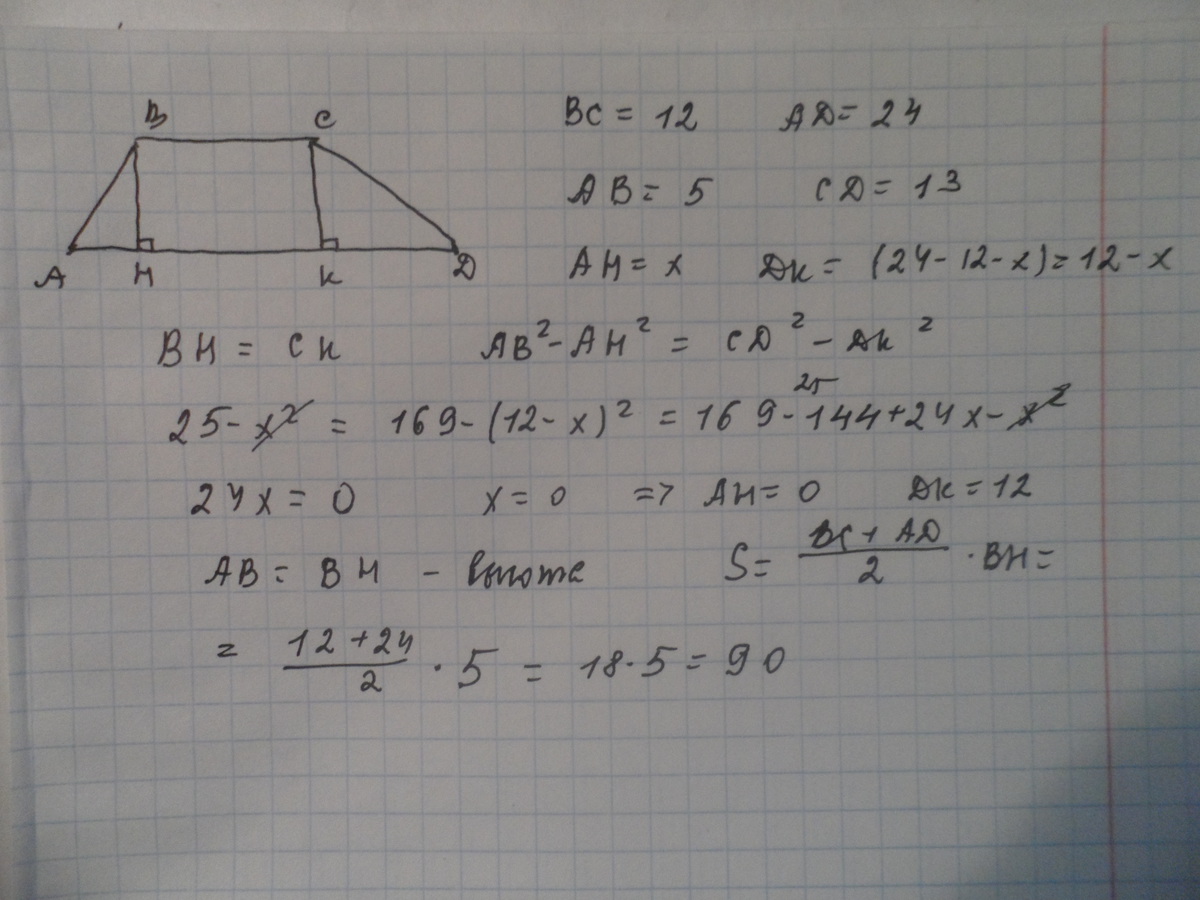 B C
BC = 12 AD = 24
AB = 5 CD = 13
A H K D
AH = x DK = (24 - 12 - x) = 12 - x
BH = CK AB² - AH² = CD² - DK²
25
25 - x² = 169 - (12 - x)² = 169 - 144 + 24x - x²
24x = 0 x = 0 => AH = 0 DK = 12
AB = BH - высота S = (BC + AD)/2 · BH =
= (12 + 24)/2 · 5 = 18 · 5 = 90